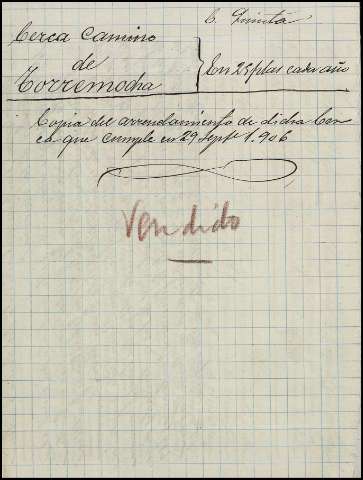 C. Quinta
Cerca Camino
de
Torremocha
En 25 ptas cada año
Copia del arrendamiento de dicha Cer-
ca que cumple en 29 Septe 1.906
Vendido